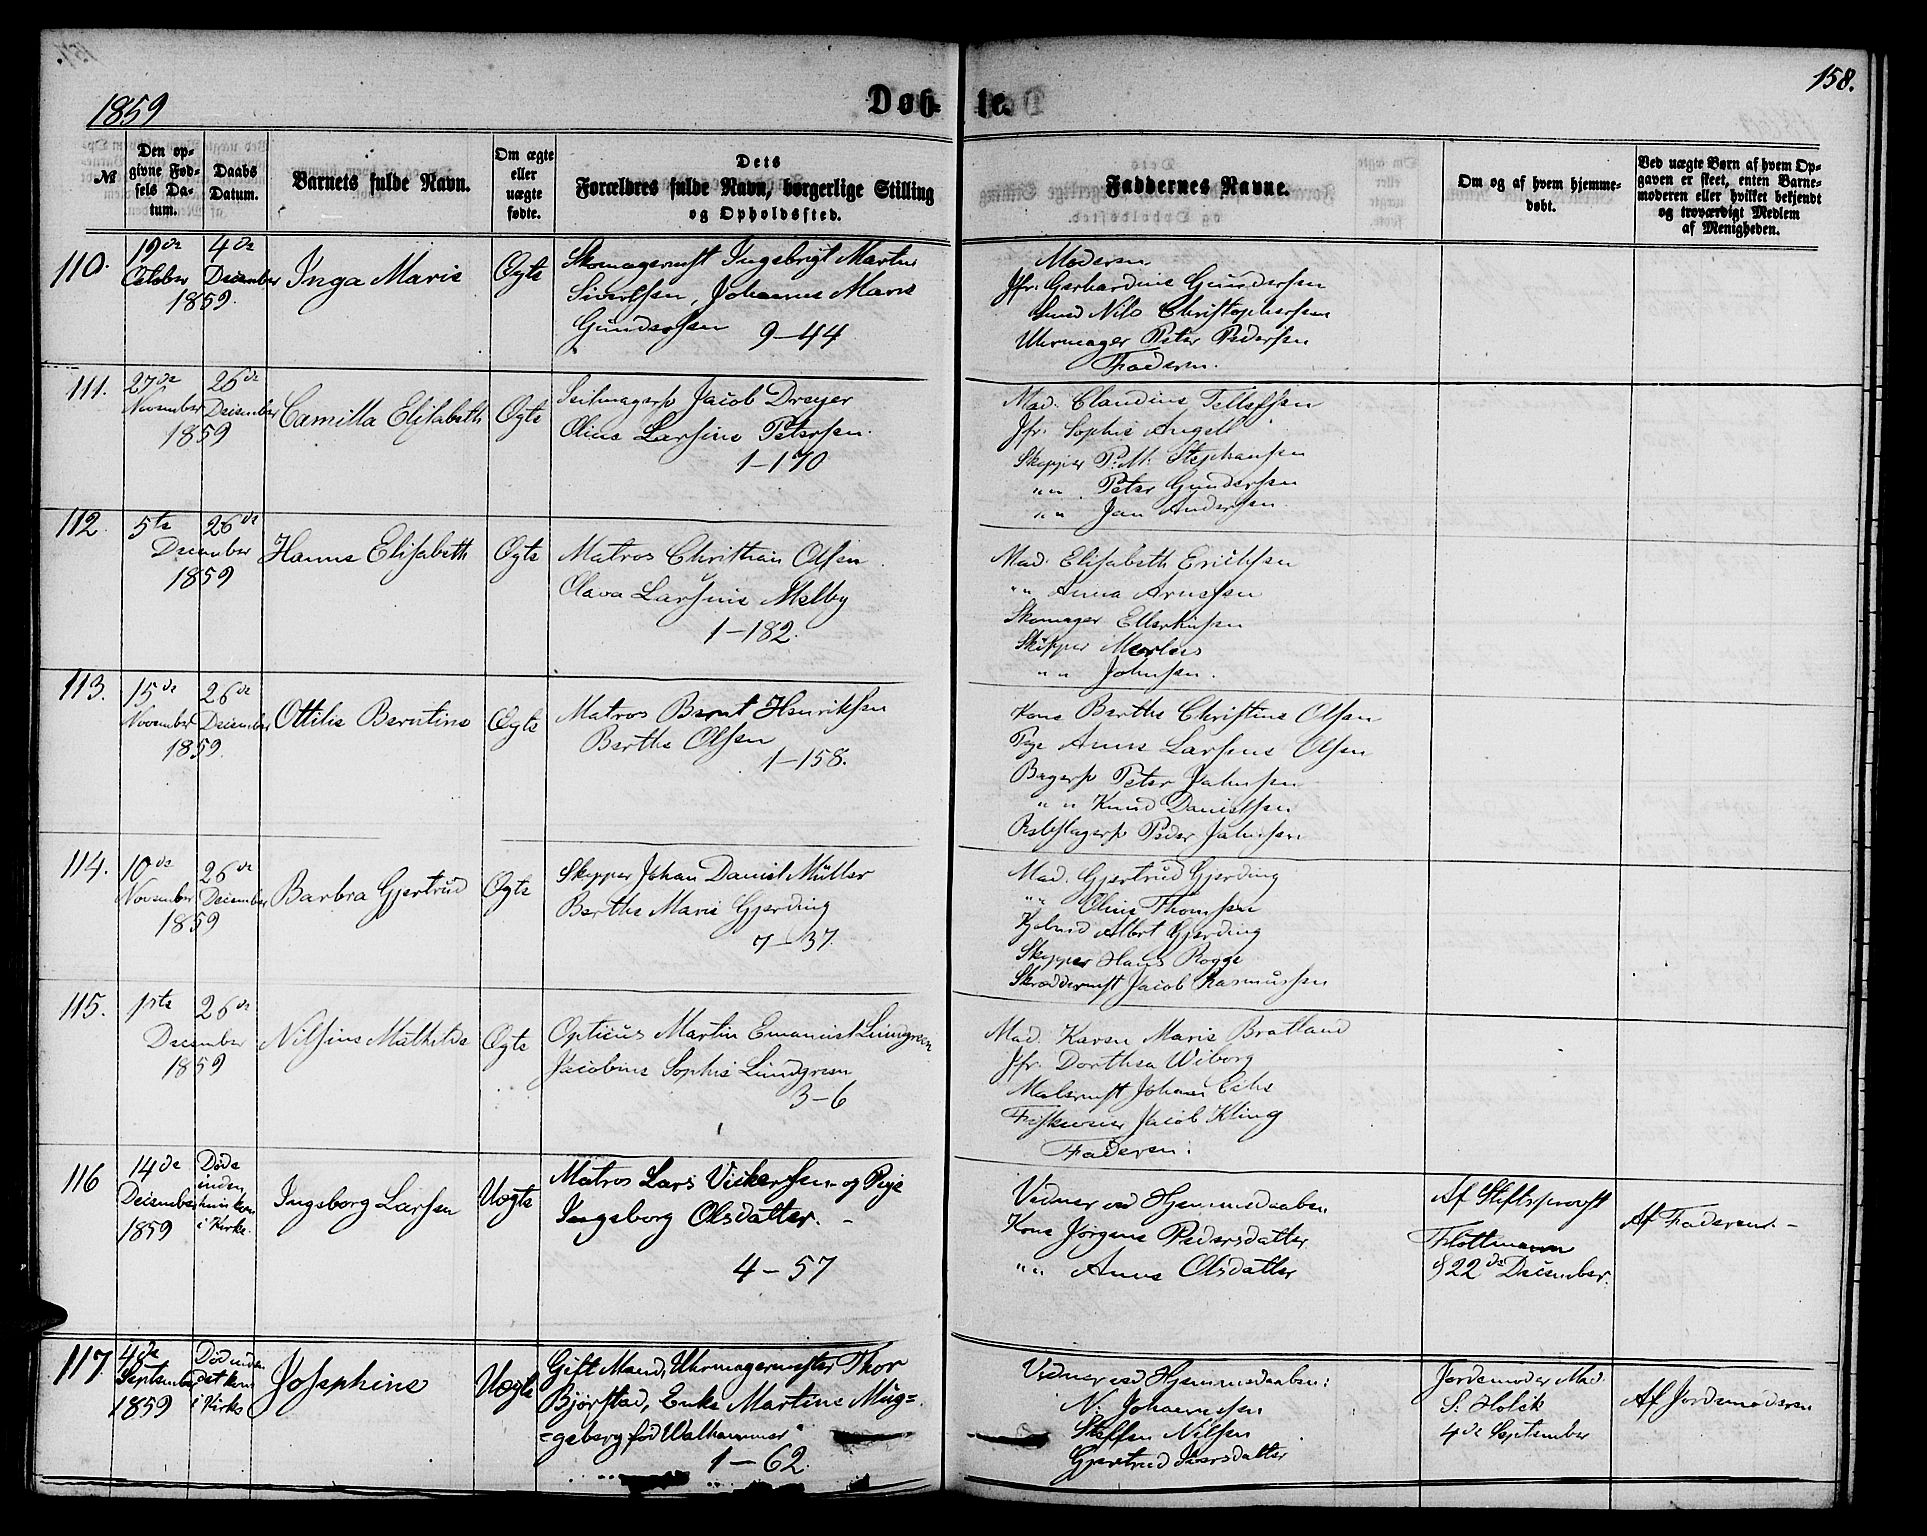 1859
Døb- te.
158.
№
Den op-
givne Fød-
sels Da-
tum.
Daabs
Datum.
Barnets fulde Navn.
Om ægte
eller
uægte
fødte.
Dets
Forældres fulde Navn, borgerlige Stilling
og Opholdssted.
Faddernes Navne.
Om og af hvem hjemme-
døbt.
Ved uægte Børn af hvem Op-
gaven er skeet, enten Barne-
moderen eller hvilket bekjendt
og troværdigt Medlem
af Menigheden.
110.
19de
October
4de
December
1859.
Inga Marie
Ægte
Skomagermst Ingebrigt Martin
Sivertsen, Johanne Marie
Gundersen 9-44
Moderen
Jfr. Gerhardine Gundersen
Smed Nils Christophersen
Uhrmager Peter Pedersen
Faderen.
111.
27de
November
26de
December
1859
Camilla Elisabeth
Ægte
Seilmagersv Jacob Dreyer
Oline Larsine Petersen.
1-170
Mad. Claudine Tellefsen
Jfr. Sophie Angell
Skipper P. M. Stephansen
"" Peter Gundersen
"" Jan Andersen.
112.
5te
26de
December
1859
Hanne Elisabeth
Ægte
Matros Christian Olsen
Olava Larsine Melby
1-182.
Mad. Elisabeth Erichsen
"" Anna Arnesen
Skomager Ellerhusen
Skipper
"" Johnsen.
113.
15de
November
26de
December
1859.
Ottilie Berntine
Ægte
Matros Bernt Henriksen
Berthe Olsen
1-158.
Kone Berthe Christine Olsen
Pige Anne Larsine Olsen
Bagersv Peter Johnsen
"" Knud Danielsen
Rebslagersv Peder Johnsen
114.
10de
November
26de
December
1859
Barbra Gjertrud
Ægte
Skipper Johan Daniel Müller
Berthe Marie Gjerding
7-37.
Mad. Gjertrud Gjerding
"" Oline Thomsen
Kjøbmd Albert Gjerding
Skipper Hans Rogge
Skræddermst Jacob Rasmussen
115.
1ste
26de
December
1859
Nilsine Mathilde
Ægte
Opticus Martin Emanuel Lundgreen
Jacobine Sophie Lundgreen
3-6
Mad. Karen Marie Bratland
Jfr. Dorthea Wiborg
Malermst Johan
Jacob Kling
Faderen.
116
14de
December
1859
Døde
inden
hun kom
i Kirke.
Ingeborg Larsen
Uægte
Matros Lars Vickersen og Pige
Ingeborg Olsdatter.
4-57
Vidner ved Hjemmedaaben
Kone Jørgine Pedersdatter
"" Anne Olsdatter
Af Stiftsprovst
Flottmann
d 22de December.
Af Faderen.
117.
4de
September
1859
Død inden
det kom
i Kirke
Josephine
Uægte
Gift Mand, Uhrmagermester Thor
Bjørstad, Enke Martine Müg=
=geberg, fød Walhammer
1-62.
Vidner ved Hjemmedaaben:
N. Johannesen
Steffen Nilsen
Gjertrud Iversdatter
Jordemoder Mad.
S. Holck
4de September
Af Jordemoderen